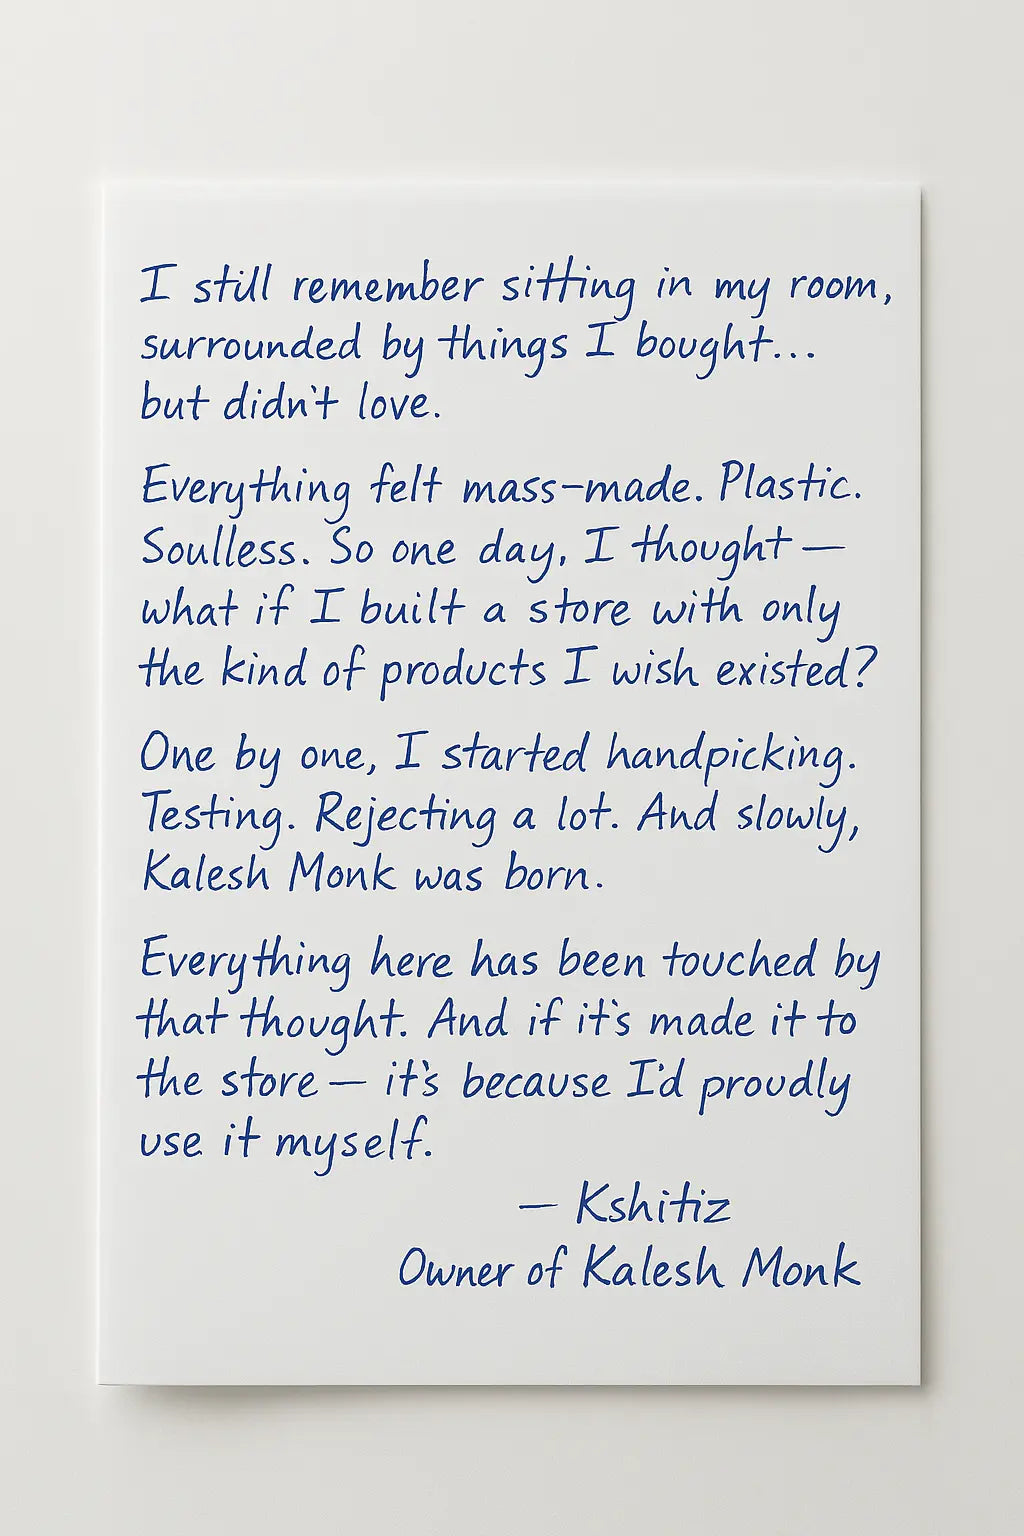 I still remember sitting in my room,
surrounded by things I bought...
but didn't love.
Everything felt mass-made. Plastic.
Soulless. So one day, I thought —
what if I built a store with only
the kind of products I wish existed?
One by one, I started handpicking.
Testing. Rejecting a lot. And slowly,
Kalesh Monk was born.
Everything here has been touched by
that thought. And if it's made it to
the store — it's because I'd proudly
use it myself.
— Kshitiz
Owner of Kalesh Monk